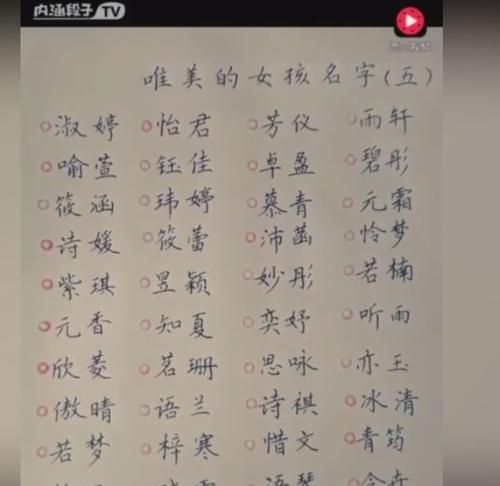 内涵段子TV
唯美的女孩名字(五)
淑婷 怡君 芳仪 雨轩
喻萱 钰佳 卓盈 碧彤
筱涵 玮婷 慕青 元霜
诗媛 筱蕾 沛菡 怜梦
紫琪 昱颖 妙彤 若楠
元香 知夏 奕妤 听雨
欣菱 茗珊 思咏 亦玉
傲晴 语兰 诗祺 冰清
若梦 梓寒 惜文 青筠